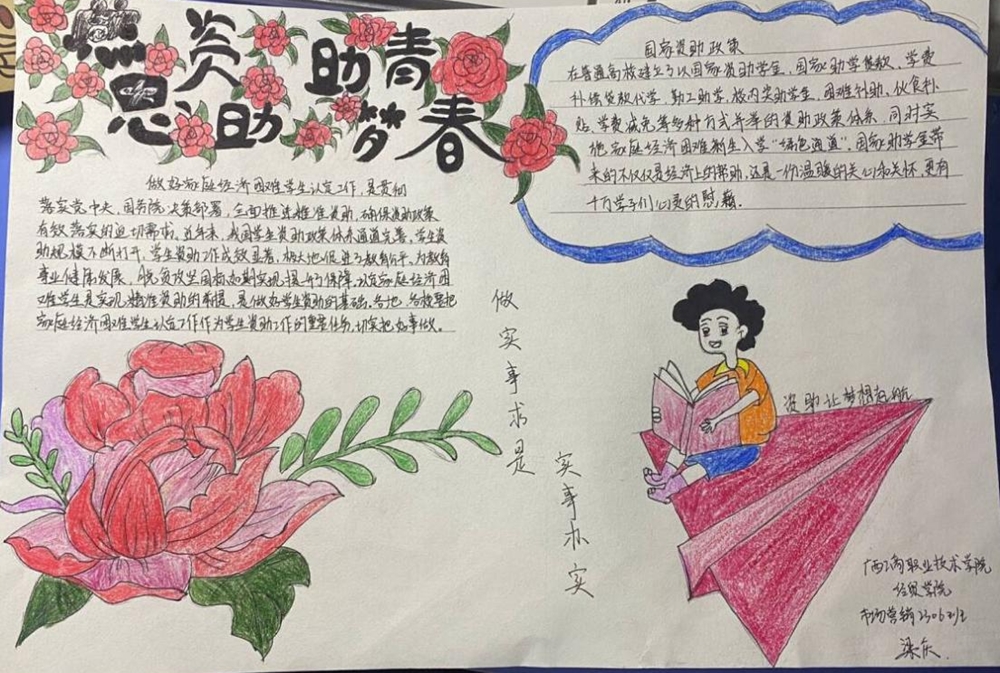 感
资助
资助
青春
梦
做好家庭经济困难学生认定工作,是贯彻
落实党中央,国务院决策部署,全面推进精准资助,确保资助政策
有效落实的迫切需求。近年来,我国学生资助政策体系逐通完善,学生资
助规模不断打开,学生资助工作成效显著,极大地促进了教育公平,为教育
事业健康发展,脱贫攻坚目标如期实现提升了保障,认定家庭经济困
难学生是实现精准资助的前提,是做好学生资助的基础。各地,各校要把
家庭经济困难学生认定工作作为学生资助工作的重要任务,切实把好事做。
国家资助政策
在普通高校建立了以国家资助学金,国家助学贷款、学费
补偿贷款代学,勤工助学,校内奖助学生,困难补助,伙食补
贴,学费减免等多种方式并举的资助政策体系,同时实
施家庭经济困难新生入学"绿色通道",国家助学金带
来的不仅仅是经济上的帮助,还是一份温暖的关心和关怀,更有
十万学子们心灵的慰藉.
做实事求是
实事办实
资助让梦想起航
职业技术学院
经贸学院
市场营销2306班